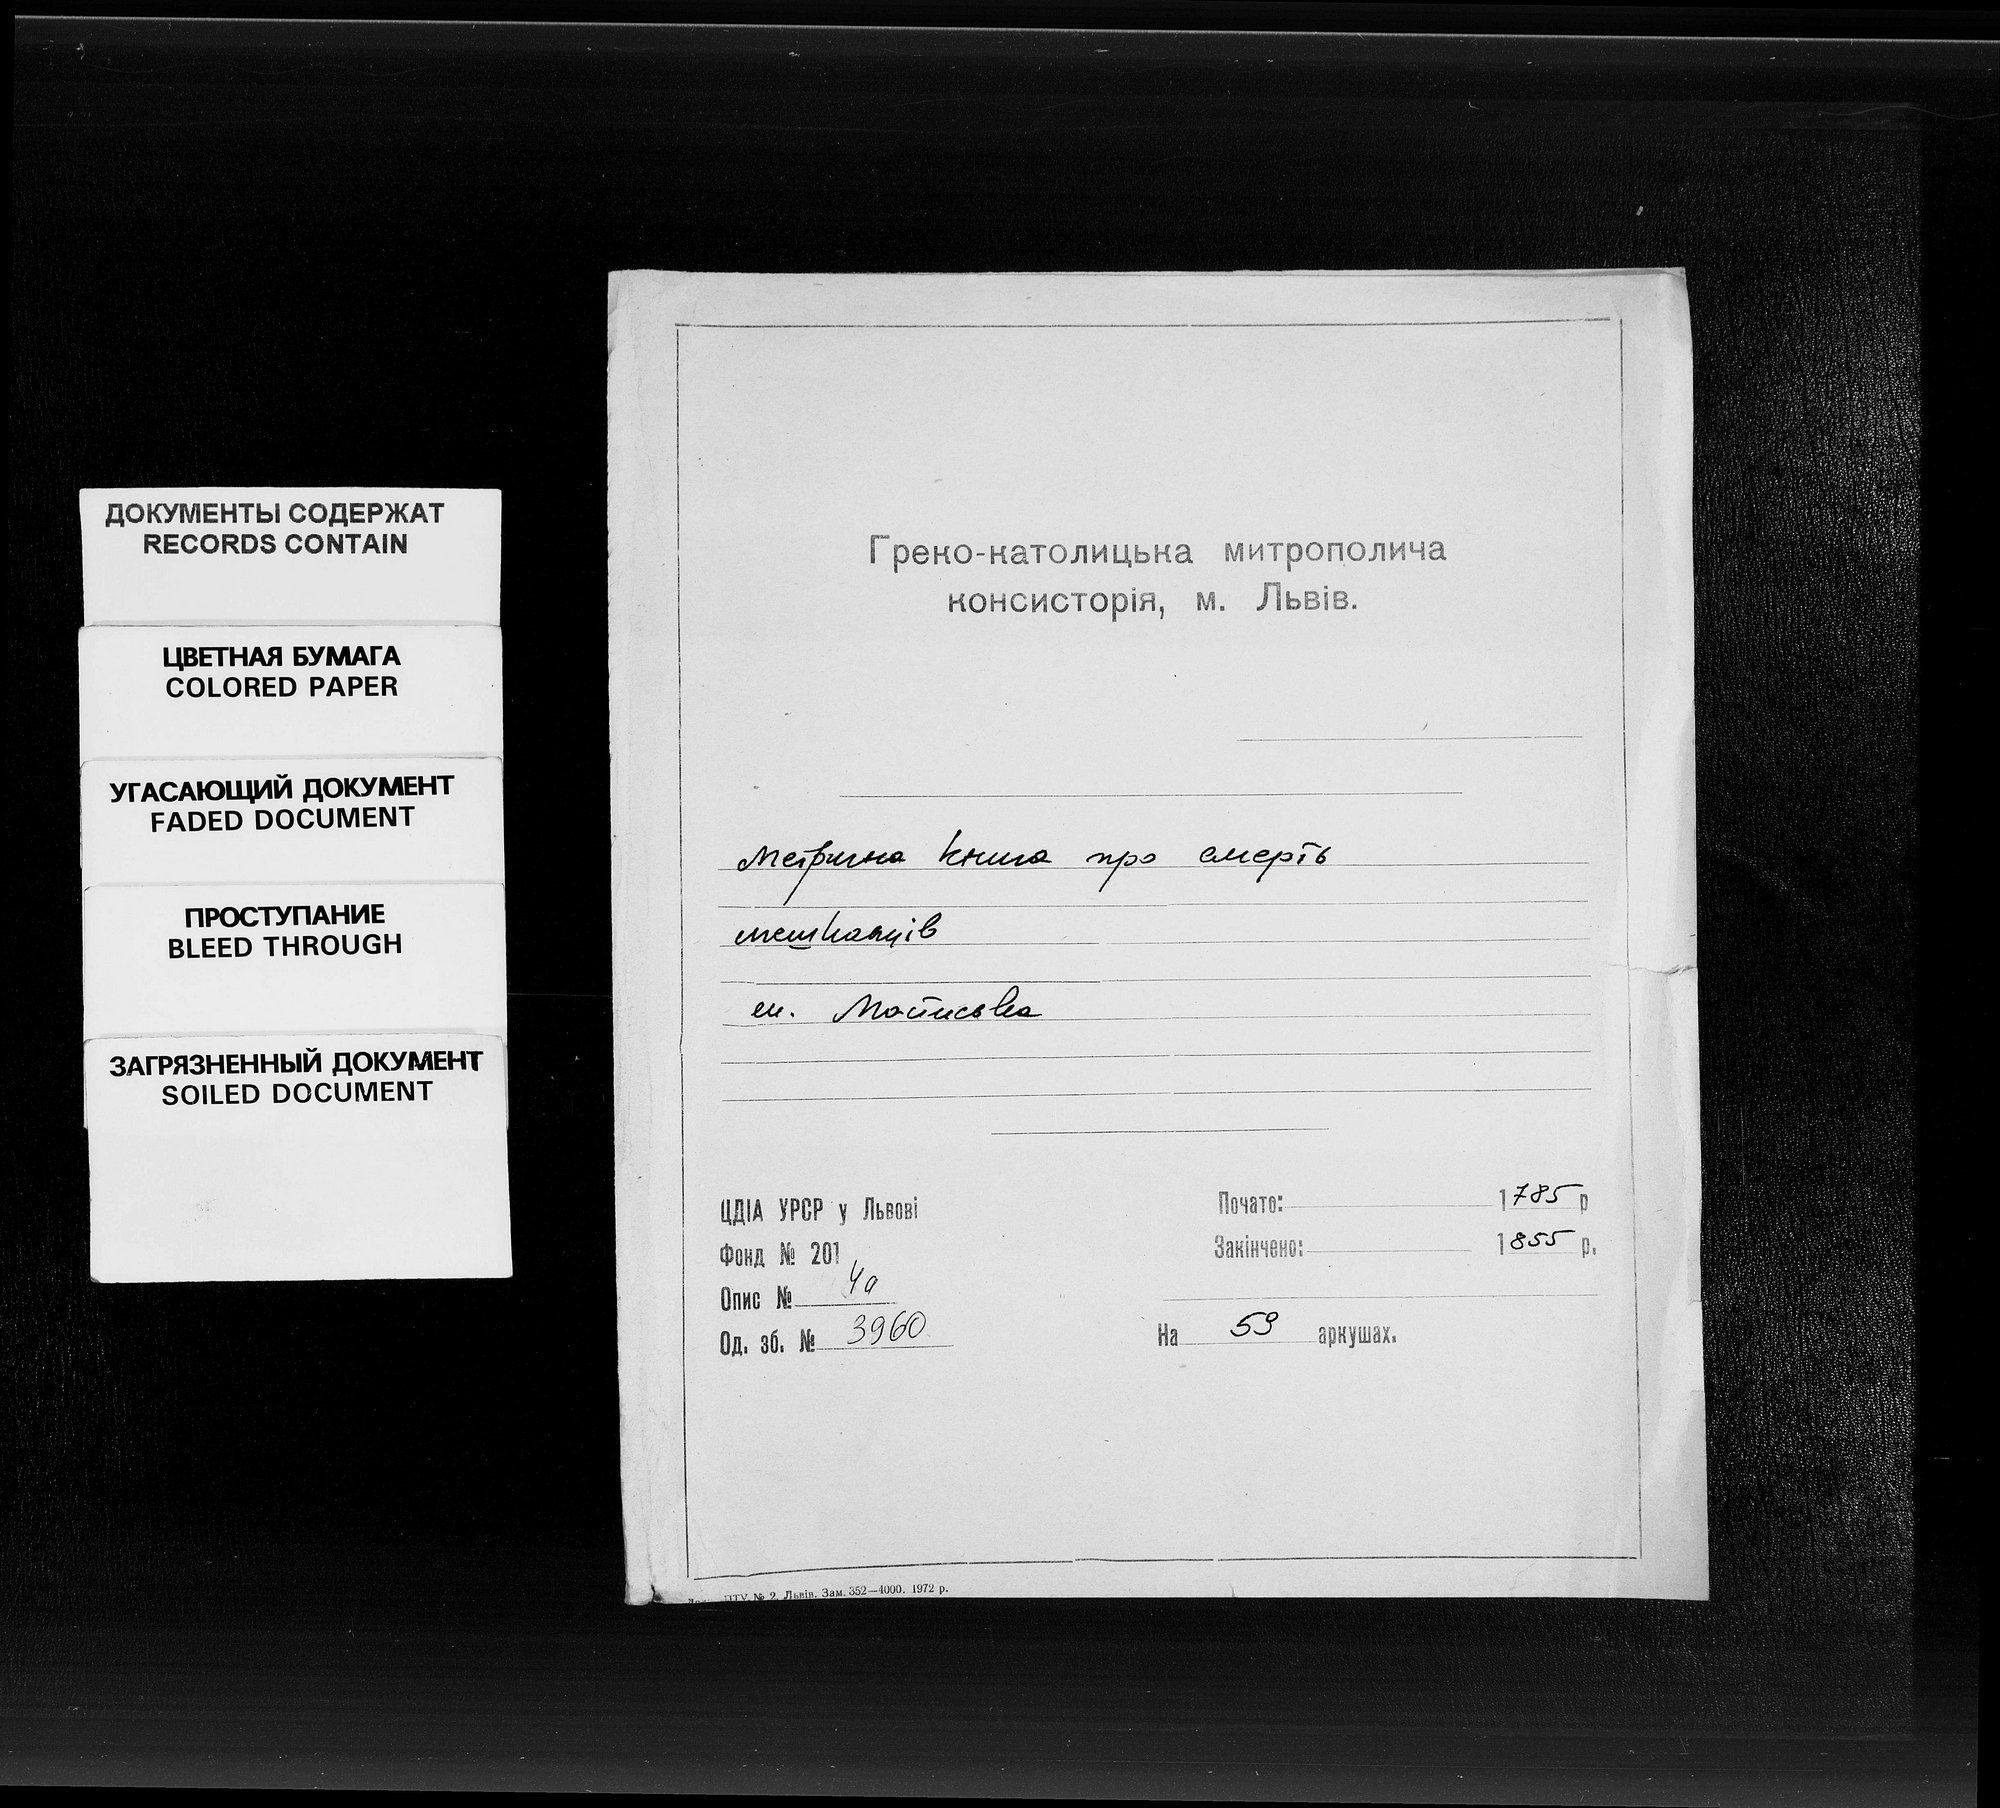 ДОКУМЕНТЫ СОДЕРЖАТ
RECORDS CONTAIN
ЦВЕТНАЯ БУМАГА
COLORED PAPER
УГАСАЮЩИЙ ДОКУМЕНТ
FADED DOCUMENT
ПРОСТУПАНИЕ
BLEED THROUGH
ЗАГРЯЗНЕННЫЙ ДОКУМЕНТ
SOILED DOCUMENT
Греко-католицька митрополича
консисторія, м. Львів.
Метрична книга про смерть
мешканців
м.
ЦДІА УРСР у Львові
Фонд № 201
Опис № 4а
Од. зб. № 3960
Почато: 1785 р
Закінчено: 1855 р.
На 59 аркушах.
№ 2. Львів. Зам. 352—4000. 1972 р.